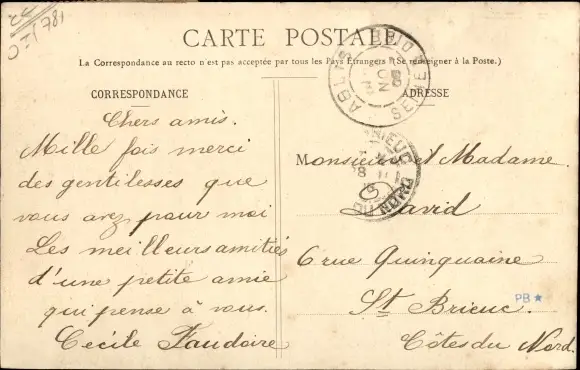 781
CARTE POSTALE
La Correspondance au recto n'est pas acceptée par tous les Pays Étrangers (Se renseigner à la Poste.)
CORRESPONDANCE
ADRESSE
ABLIS
SEINE
BRIEUC
Chers amis.
Mille fois merci
des gentilesses que
vous avez pour moi
Les meilleurs amitiés
d'une petite amie
qui pense à vous.
Cecile Faudoire
Monsieur et Madame
David
6 rue Quinquaine
St Brieuc.
Côtes du Nord.
PB★